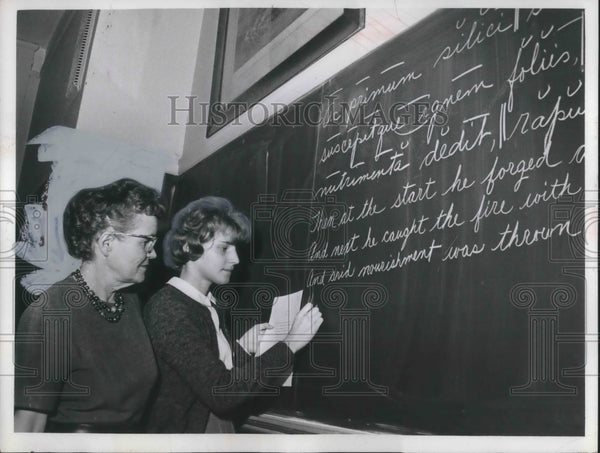 primum silici
suscepitque ignem foliis,
nutrimenta dedit, rapu
Then at the start he forged a
And next he caught the fire with
And said nourishment was thrown
HISTORIC IMAGES